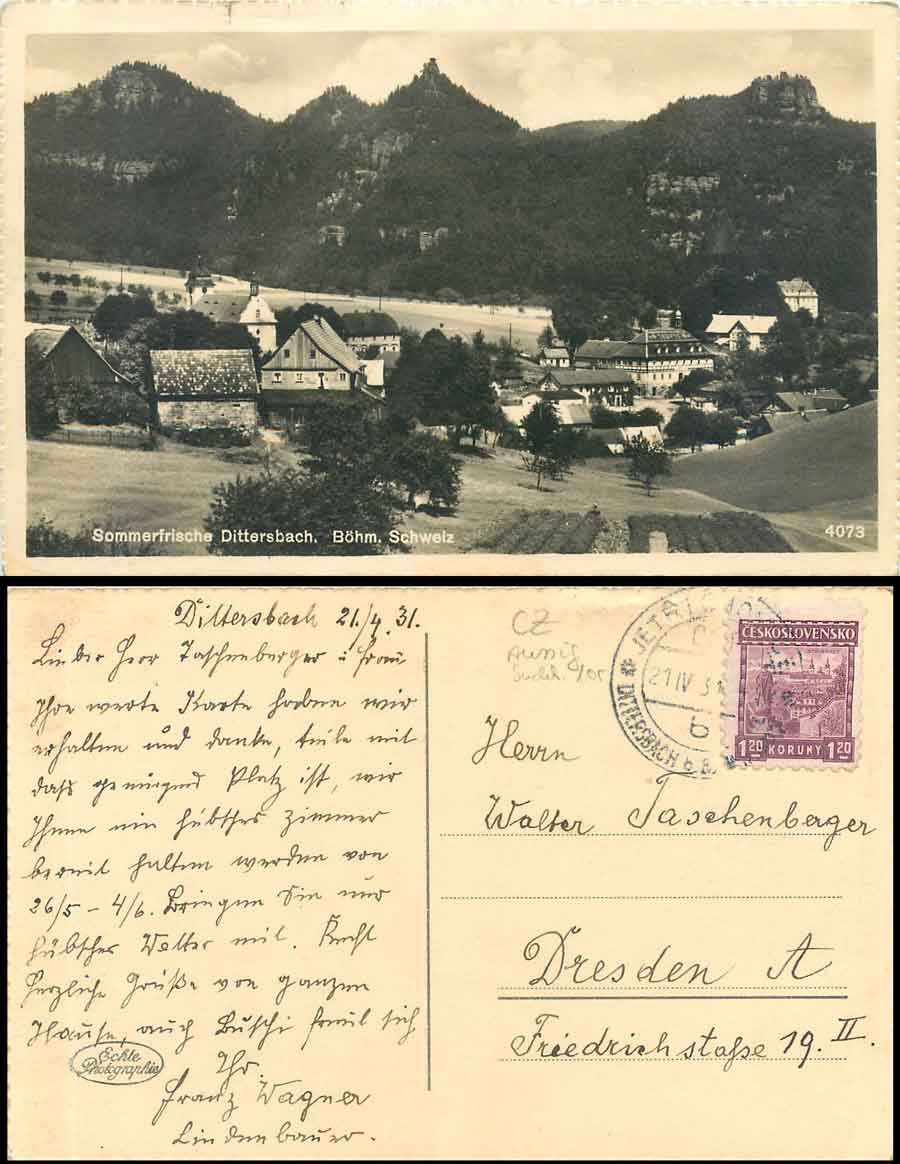 Sommerfrische Dittersbach, Böhm. Schweiz
4073
Dittersbach 21./4.31.
Lieber Herr Taschenberger u. Frau,
Ihre werte Karte haben wir
erhalten und danke, teile mit
daß genügend Platz ist, wir
Ihnen ein hübsches Zimmer
bereit halten werden von
26/5 – 4/6. Bringen Sie nur
hübsches Wetter mit. Recht
herzliche Grüße von ganzen
Hause, auch Buschi freut sich
Ihr.
Franz Wagner
Lindenbauer.
Echte
Photographie
CZ
Aussig
JETŘICHOVICE
21 IV 31
DITTERSBACH b. B.
ČESKOSLOVENSKO
1.20 KORUNY 1.20
Herrn
Walter Taschenberger
Dresden A
Friedrichstaße 19. II.